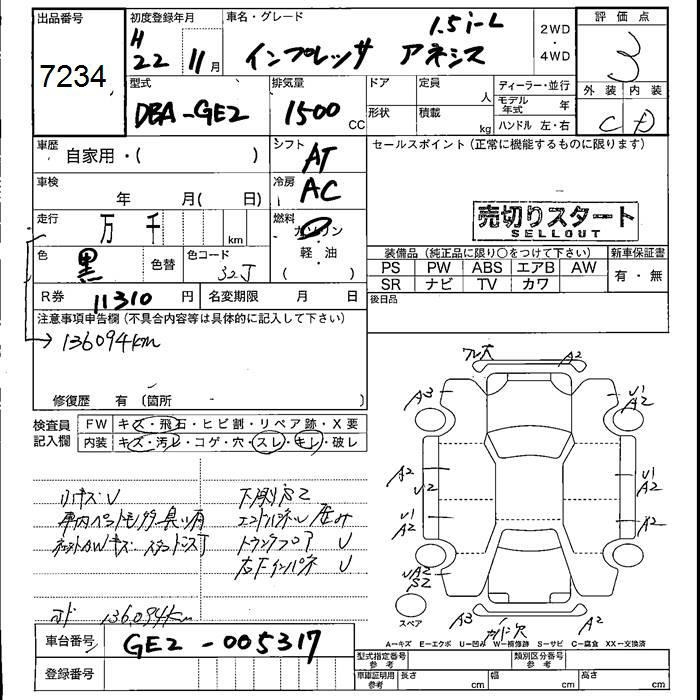 出品番号
7234
初度登録年月
H
22 11月
車名・グレード
1.5 i-L
インプレッサ アネシス
2WD
・
4WD
評価点
3
外装 内装
C D
型式
DBA-GE2
排気量
1500 CC
ドア
定員
人
形状
積載
kg
ディーラー・並行
モデル年式 年
ハンドル 左・右
車歴
自家用・( )
シフト
AT
セールスポイント(正常に機能するものに限ります)
車検
年 月( 日)
冷房
AC
走行
万 千
km
燃料
ガソリン
・
軽・油
( )
売切りスタート
SELLOUT
色
黒
色替
色コード
32J
装備品(純正品に限り○をつけて下さい)
新車保証書
PS PW ABS エアB AW
有・無
SR ナビ TV カワ
R券 11310 円
名変期限 月 日
後日品
注意事項申告欄(不具合内容等は具体的に記入して下さい)
136094km
修復歴 有(箇所 )
検査員
記入欄
FW キズ・飛石・ヒビ割・リペア跡・X要
内装 キズ・汚レ・コゲ・穴・スレ・キレ・破レ
A2
A3
U1
A2
A2
U2
U1
A2
U1
A2
A2
UA2
S2
A3
A2
スペア
リキズU
エンドパネU 歪み
トランクフロア U
136,094km
A=キズ E=エクボ U=凹み W=補修跡 S=サビ C=腐食 XX=交換済
車台番号
GE2-005317
登録番号
型式指定番号
参考
類別区分番号
参考
車庫証明用
参考
長さ cm
幅 cm
高さ cm